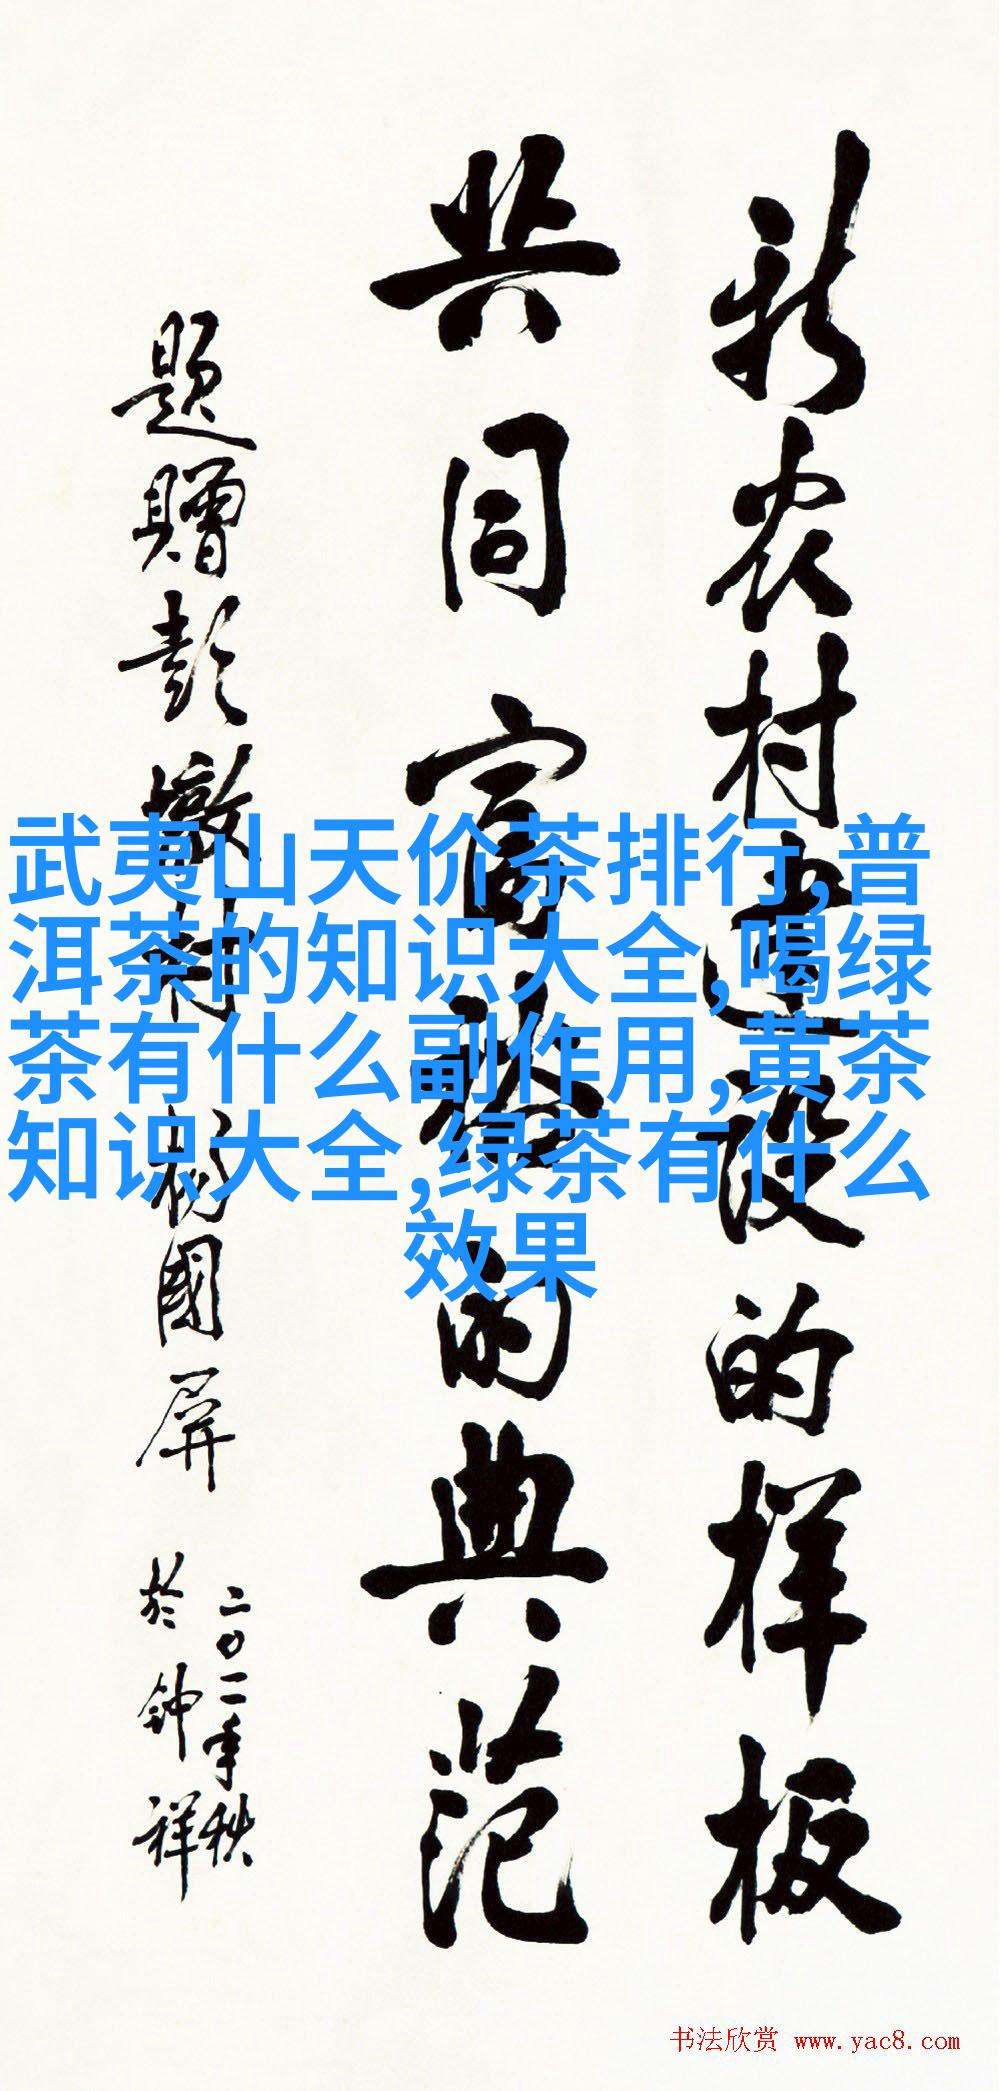 新农村建设的样板
共同富裕的典范
题赠彭墩村
杨国屏
二〇一一年秋
於钟祥
武夷山天价茶排行,普
洱茶的知识大全,喝绿
茶有什么副作用,黄茶
知识大全,绿茶有什么
效果
书法欣赏 www.yac8.com